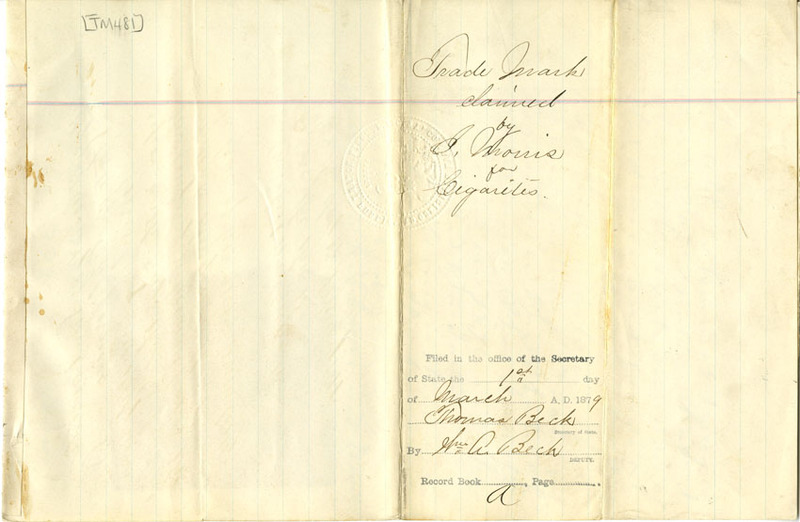 [TM481]
Trade Mark
claimed
by
Morris
for
Cigarites.
Filed in the office of the Secretary
of State the 1st day
of March A. D. 1879
Thomas Beck
Secretary of State.
By Wm A. Beck
DEPUTY.
Record Book , Page
A